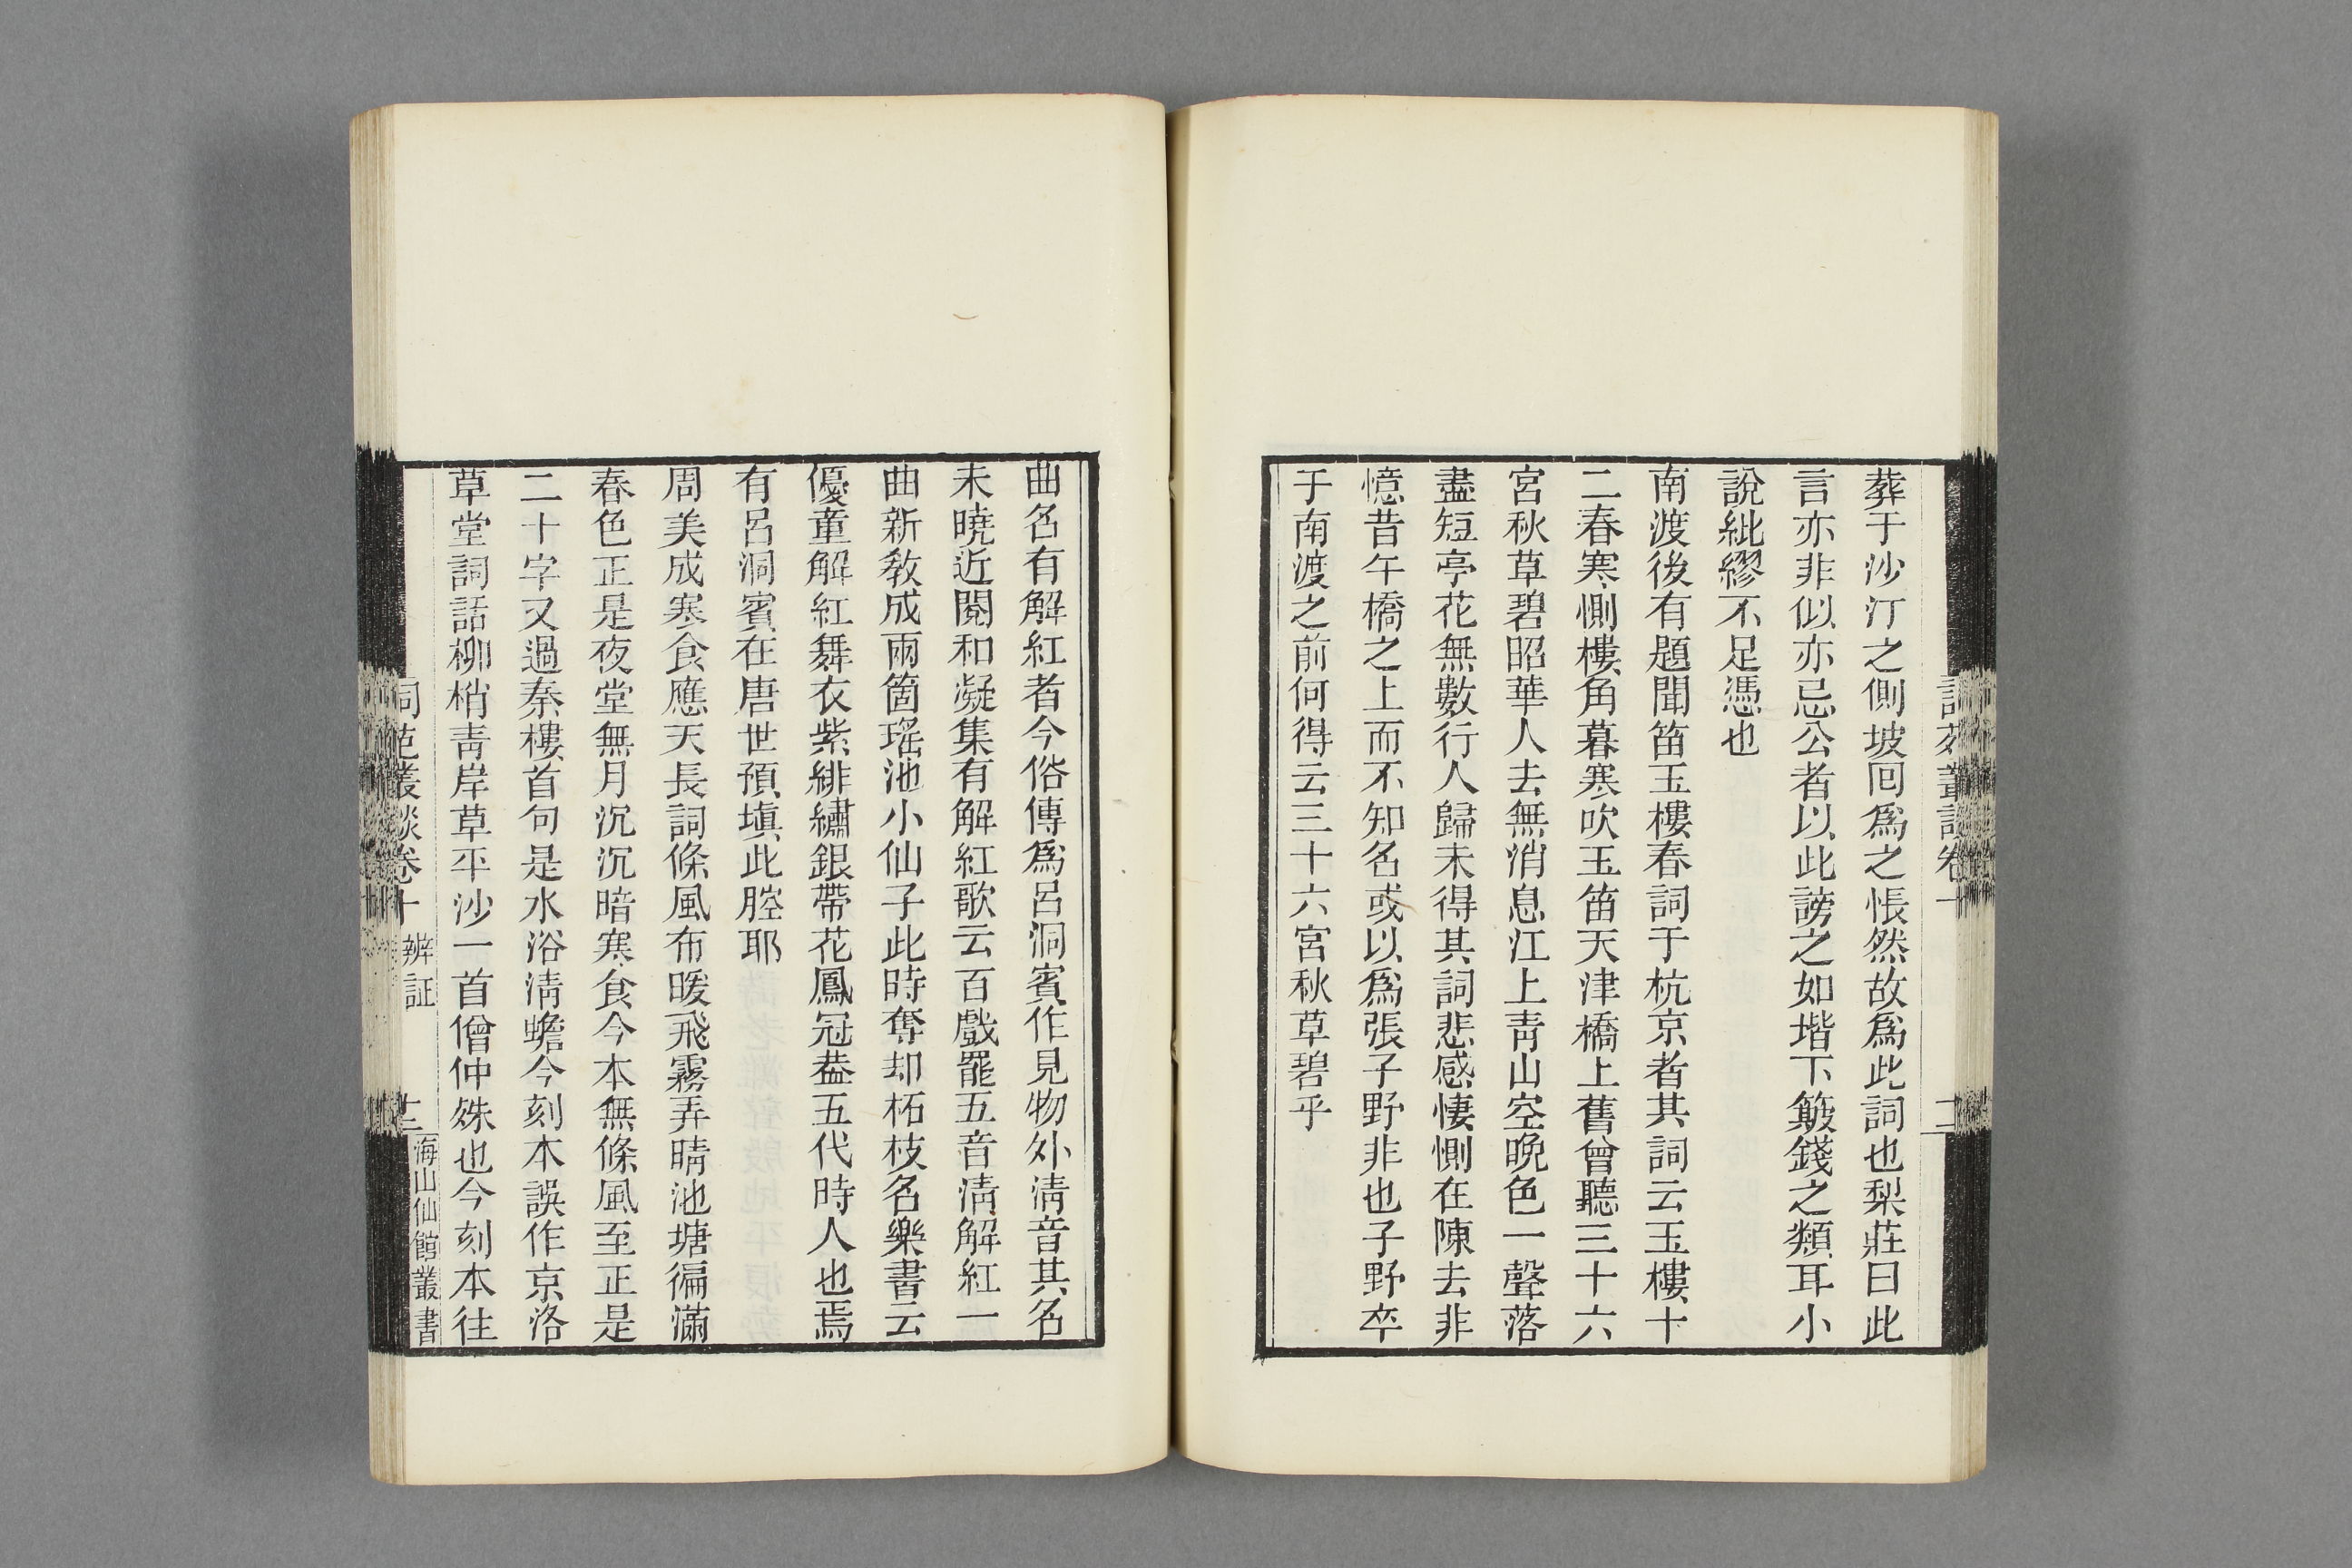 葬于沙汀之側坡囘爲之悵然故爲此詞也梨莊曰此
言亦非似亦忌公者以此謗之如堦下簸錢之類耳小
說紕繆不足憑也
南渡後有題聞笛玉樓春詞于杭京者其詞云玉樓十
二春寒惻樓角暮寒吹玉笛天津橋上舊曾聽三十六
宮秋草碧昭華人去無消息江上靑山空晩色一聲落
盡短亭花無數行人歸未得其詞悲感悽惻在陳去非
憶昔午橋之上而不知名或以爲張子野非也子野卒
于南渡之前何得云三十六宮秋草碧乎
曲名有解紅者今俗傳爲呂洞賓作見物外淸音其名
未曉近閱和凝集有解紅歌云百戲罷五音淸解紅一
曲新教成兩箇瑤池小仙子此時奪却柘枝名樂書云
優童解紅舞衣紫緋繡銀帶花鳳冠葢五代時人也焉
有呂洞賓在唐世預塡此腔耶
周美成寒食應天長詞條風布暖飛霧弄晴池塘徧滿
春色正是夜堂無月沉沉暗寒食今本無條風至正是
二十字又過秦樓首句是水浴淸蟾今刻本誤作京洛
草堂詞話柳梢靑岸草平沙一首僧仲殊也今刻本往
詞苑叢談卷十 辨証 十二 海山仙館叢書